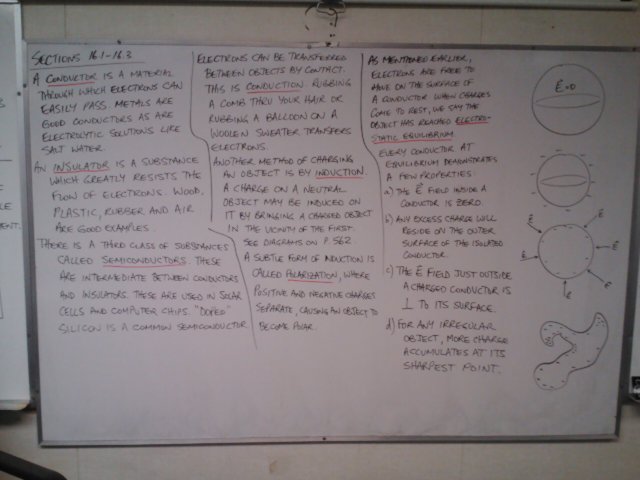 SECTIONS 16.1-16.3
A CONDUCTOR IS A MATERIAL
THROUGH WHICH ELECTRONS CAN
EASILY PASS. METALS ARE
GOOD CONDUCTORS AS ARE
ELECTROLYTIC SOLUTIONS LIKE
SALT WATER.
AN INSULATOR IS A SUBSTANCE
WHICH GREATLY RESISTS THE
FLOW OF ELECTRONS. WOOD,
PLASTIC, RUBBER AND AIR
ARE GOOD EXAMPLES.
THERE IS A THIRD CLASS OF SUBSTANCES
CALLED SEMICONDUCTORS. THESE
ARE INTERMEDIATE BETWEEN CONDUCTORS
AND INSULATORS. THESE ARE USED IN SOLAR
CELLS AND COMPUTER CHIPS. "DOPED"
SILICON IS A COMMON SEMICONDUCTOR.
ELECTRONS CAN BE TRANSFERRED
BETWEEN OBJECTS BY CONTACT.
THIS IS CONDUCTION. RUBBING
A COMB THRU YOUR HAIR OR
RUBBING A BALLOON ON A
WOOLEN SWEATER TRANSFERS
ELECTRONS.
ANOTHER METHOD OF CHARGING
AN OBJECT IS BY INDUCTION.
A CHARGE ON A NEUTRAL
OBJECT MAY BE INDUCED ON
IT BY BRINGING A CHARGED OBJECT
IN THE VICINITY OF THE FIRST.
SEE DIAGRAMS ON P. 562.
A SUBTLE FORM OF INDUCTION IS
CALLED POLARIZATION, WHERE
POSITIVE AND NEGATIVE CHARGES
SEPARATE, CAUSING AN OBJECT TO
BECOME POLAR.
AS MENTIONED EARLIER,
ELECTRONS ARE FREE TO
MOVE ON THE SURFACE OF
A CONDUCTOR. WHEN CHARGES
COME TO REST, WE SAY THE
OBJECT HAS REACHED ELECTRO-
STATIC EQUILIBRIUM.
EVERY CONDUCTOR AT
EQUILIBRIUM DEMONSTRATES
A FEW PROPERTIES:
a) THE E⃗ FIELD INSIDE A
CONDUCTOR IS ZERO.
b) ANY EXCESS CHARGE WILL
RESIDE ON THE OUTER
SURFACE OF THE ISOLATED
CONDUCTOR.
c) THE E⃗ FIELD JUST OUTSIDE
A CHARGED CONDUCTOR IS
⊥ TO ITS SURFACE.
d) FOR ANY IRREGULAR
OBJECT, MORE CHARGE
ACCUMULATES AT ITS
SHARPEST POINT.
E⃗=0
E⃗
E⃗
E⃗
E⃗
E⃗